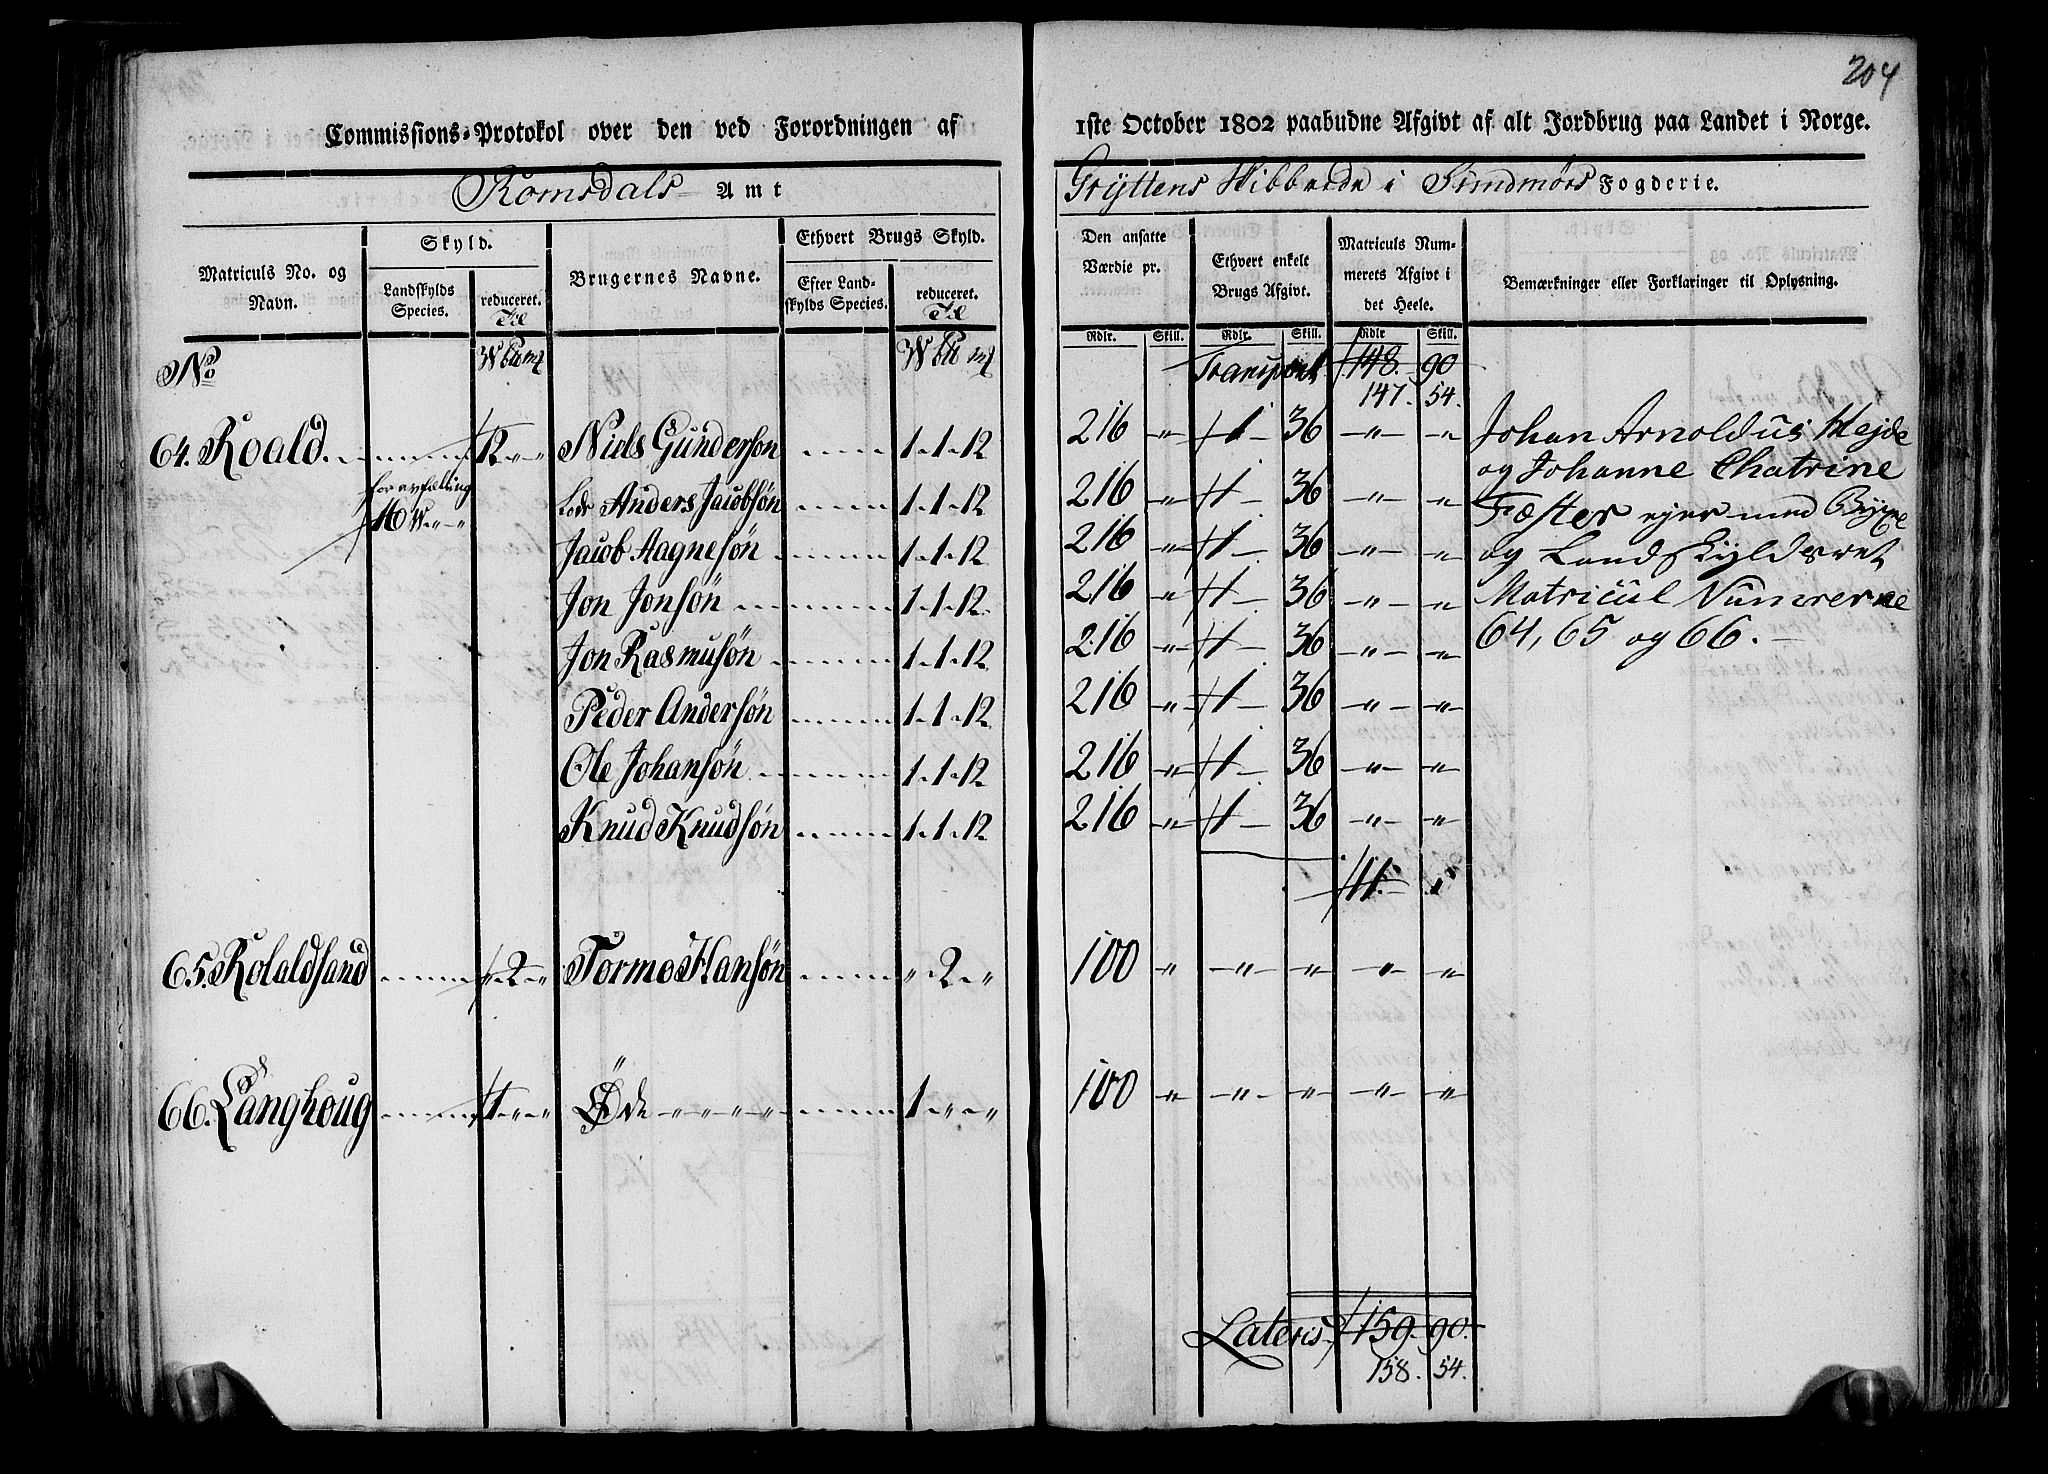 204
Commissions-Protokol over den ved Forordningen af 1ste October 1802 paabudne Afgivt af alt Jordbrug paa Landet i Norge.
Romsdals Amt Gryttens Skibbrede i Sundmørs Fogderie.
Matriculs No. og Navn. Skyld. Landskylds Species. reduceret. Til Brugernes Navne. Ethvert Brugs Skyld. Efter Landskylds Species. reduceret. Til Den ansatte Værdie pr. Ethvert enkelt Brugs Afgivt. Matriculs Nummerets Afgivt i det Heele. Bemærkninger eller Forklaringer til Oplysning.
Rdlr. Skill. Rdlr. Skill. Rdlr Skill.
No W Pd mk W Pd mk Transport 148. 90
147. 54.
64. Roald 12 " " Niels Gunderson 1. 1. 12 216 " 1 36 " "
for avfælling
16 W " "
Lods Anders Jacobsøn 1. 1. 12 216 " 1 36 " "
Jacob Aagnesøn 1. 1. 12 216 " 1 36 " "
Jon Jonsøn 1. 1. 12. 216 " 1 36 " "
Jon Rasmusøn 1. 1. 12 216 " 1 36 " "
Peder Andersøn 1. 1. 12 216 " 1 36 " "
Ole Johansøn 1. 1. 12 216 " 1 36 " "
Knud Knudsøn 1. 1. 12 216 " 1 36 " "
11. "
Johan Arnoldus Hejde
og Johanne Chatrine
Fæster ejer med Bÿxne
og Landskÿldsret
Matricul Numrerne
64, 65 og 66.
65. Rolaldsand " 2 " Tormo Hansøn " 2 " 100 " " " " "
66. Langhoug 1 " " Øde " " " " 1 " " 100 " " " " "
Lateris 159. 90.
158. 54.